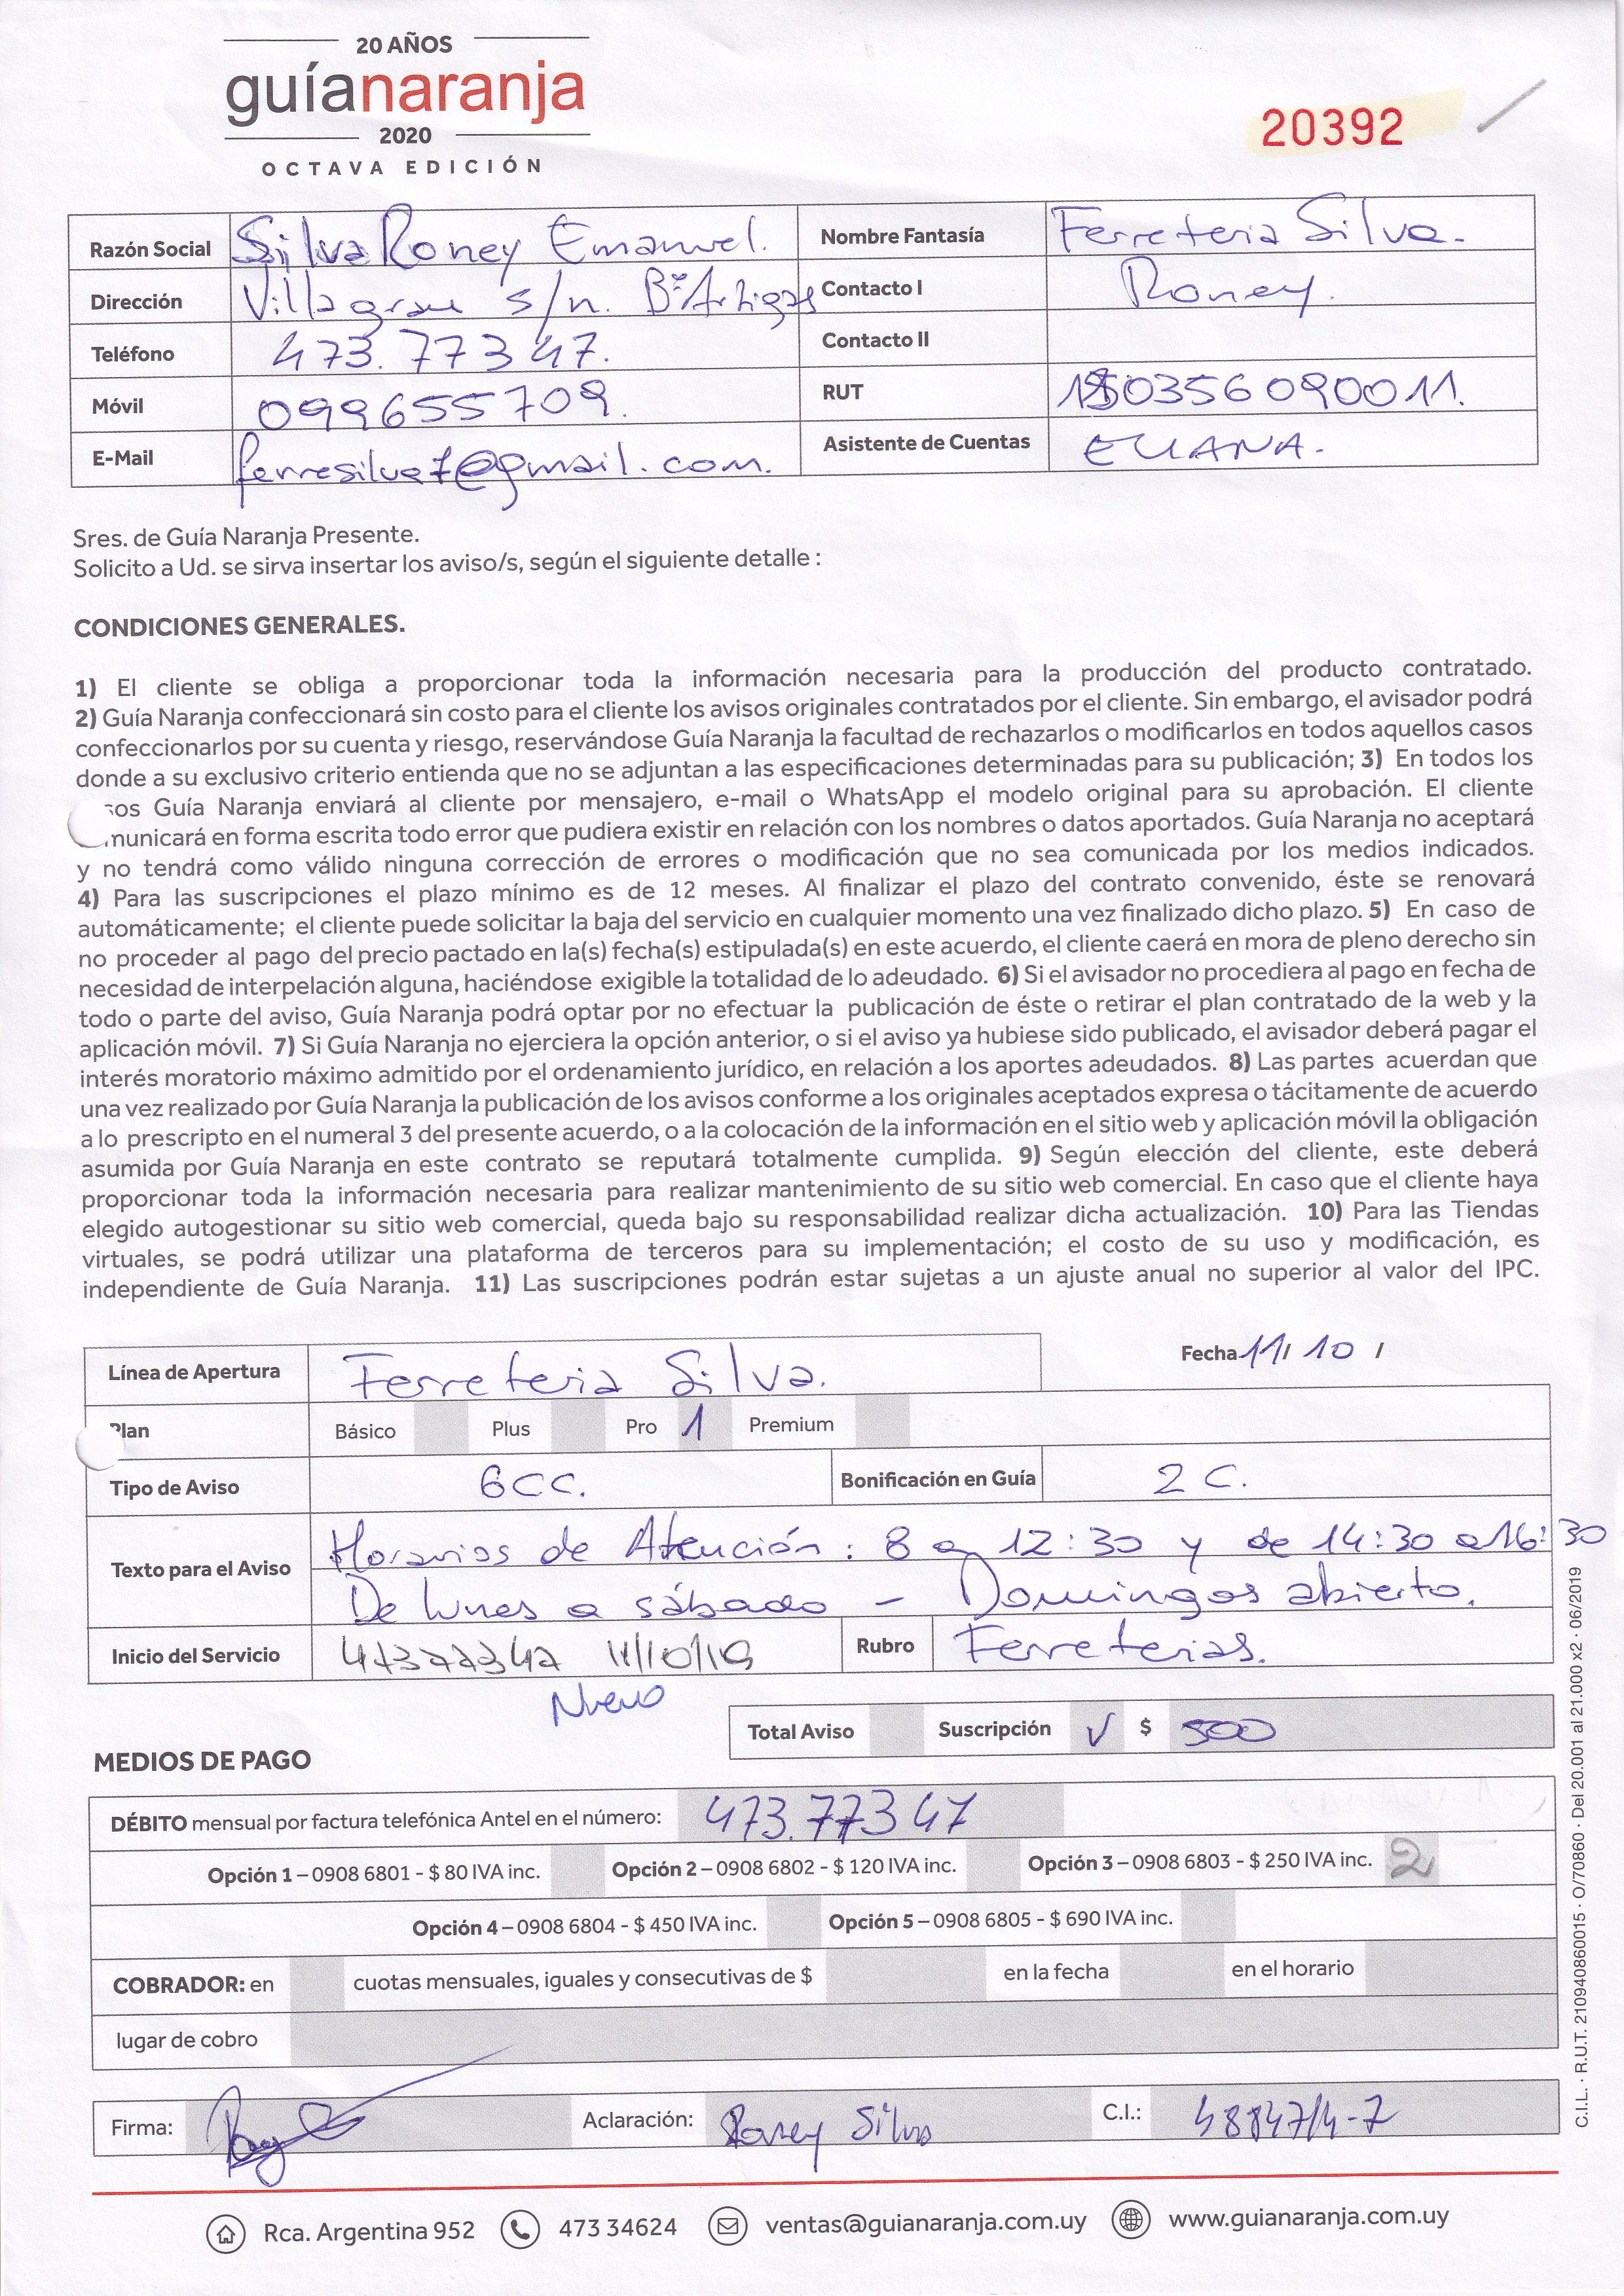 20 AÑOS
guíanaranja
2020
OCTAVA EDICIÓN
20392
Razón Social Silva Roney Emanuel. Nombre Fantasía Ferreteria Silva.
Dirección Villagran s/n. Bº Artigas Contacto I Roney.
Teléfono 473.77347. Contacto II
Móvil 099655709. RUT 150356090011.
E-Mail ferresilva1@gmail.com. Asistente de Cuentas ELIANA.
Sres. de Guía Naranja Presente.
Solicito a Ud. se sirva insertar los aviso/s, según el siguiente detalle :
CONDICIONES GENERALES.
1) El cliente se obliga a proporcionar toda la información necesaria para la producción del producto contratado.
2) Guía Naranja confeccionará sin costo para el cliente los avisos originales contratados por el cliente. Sin embargo, el avisador podrá
confeccionarlos por su cuenta y riesgo, reservándose Guía Naranja la facultad de rechazarlos o modificarlos en todos aquellos casos
donde a su exclusivo criterio entienda que no se adjuntan a las especificaciones determinadas para su publicación; 3) En todos los
sos Guía Naranja enviará al cliente por mensajero, e-mail o WhatsApp el modelo original para su aprobación. El cliente
municará en forma escrita todo error que pudiera existir en relación con los nombres o datos aportados. Guía Naranja no aceptará
y no tendrá como válido ninguna corrección de errores o modificación que no sea comunicada por los medios indicados.
4) Para las suscripciones el plazo mínimo es de 12 meses. Al finalizar el plazo del contrato convenido, éste se renovará
automáticamente; el cliente puede solicitar la baja del servicio en cualquier momento una vez finalizado dicho plazo. 5) En caso de
no proceder al pago del precio pactado en la(s) fecha(s) estipulada(s) en este acuerdo, el cliente caerá en mora de pleno derecho sin
necesidad de interpelación alguna, haciéndose exigible la totalidad de lo adeudado. 6) Si el avisador no procediera al pago en fecha de
todo o parte del aviso, Guía Naranja podrá optar por no efectuar la publicación de éste o retirar el plan contratado de la web y la
aplicación móvil. 7) Si Guía Naranja no ejerciera la opción anterior, o si el aviso ya hubiese sido publicado, el avisador deberá pagar el
interés moratorio máximo admitido por el ordenamiento jurídico, en relación a los aportes adeudados. 8) Las partes acuerdan que
una vez realizado por Guía Naranja la publicación de los avisos conforme a los originales aceptados expresa o tácitamente de acuerdo
a lo prescripto en el numeral 3 del presente acuerdo, o a la colocación de la información en el sitio web y aplicación móvil la obligación
asumida por Guía Naranja en este contrato se reputará totalmente cumplida. 9) Según elección del cliente, este deberá
proporcionar toda la información necesaria para realizar mantenimiento de su sitio web comercial. En caso que el cliente haya
elegido autogestionar su sitio web comercial, queda bajo su responsabilidad realizar dicha actualización. 10) Para las Tiendas
virtuales, se podrá utilizar una plataforma de terceros para su implementación; el costo de su uso y modificación, es
independiente de Guía Naranja. 11) Las suscripciones podrán estar sujetas a un ajuste anual no superior al valor del IPC.
Fecha 11/ 10 /
Línea de Apertura Ferreteria Silva.
Plan Básico Plus Pro 1 Premium
Tipo de Aviso 6CC. Bonificación en Guía 2 C.
Texto para el Aviso Horarios de Atención : 8 a 12:30 y de 14:30 a 16:30
De lunes a sábado - Domingos abierto.
Inicio del Servicio 47377347 11/10/19 Rubro Ferreterias.
Nuevo
Total Aviso Suscripción ✓ $ 500
MEDIOS DE PAGO
DÉBITO mensual por factura telefónica Antel en el número: 473.77347
Opción 1 – 0908 6801 - $ 80 IVA inc. Opción 2 – 0908 6802 - $ 120 IVA inc. Opción 3 – 0908 6803 - $ 250 IVA inc. 2
Opción 4 – 0908 6804 - $ 450 IVA inc. Opción 5 – 0908 6805 - $ 690 IVA inc.
COBRADOR: en cuotas mensuales, iguales y consecutivas de $ en la fecha en el horario
lugar de cobro
Firma: Aclaración: Roney Silva C.I.:
Rca. Argentina 952 473 34624 ventas@guianaranja.com.uy www.guianaranja.com.uy
C.I.L. · R.U.T. 210940860015 · O/70860 · Del 20.001 al 21.000 x2 · 06/2019